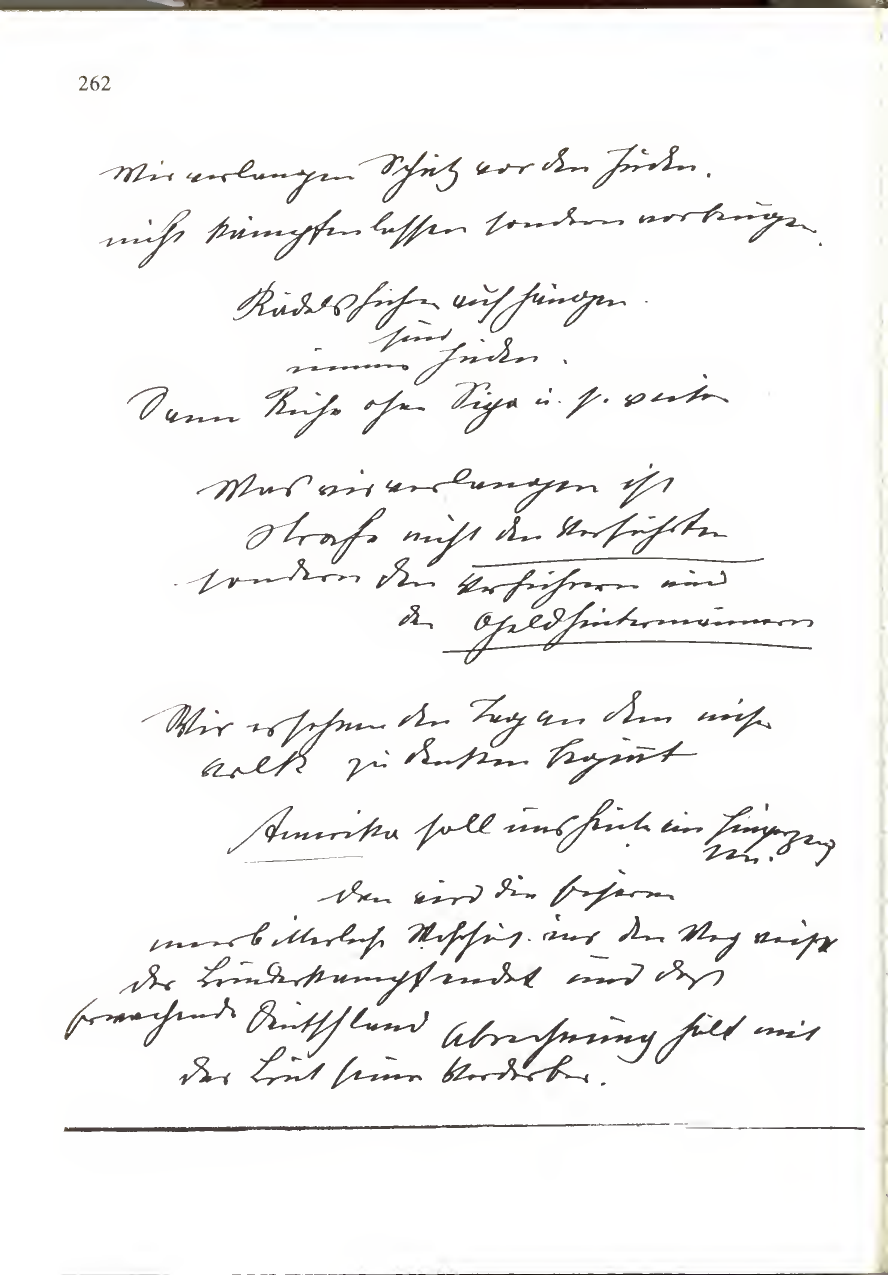 262
Wir verlangen Schutz vor den Juden.
nicht kämpfen lassen sondern vorbeugen.
Rädelsführer aufhängen.
sind
immer Juden.
Dann Ruhe ohne Sipo u. s. weiter
Was wir verlangen ist
Strafe nicht den Verführten
sondern den Verführern und
den Geldhintermännern
Wir ersehnen den Tag an dem unser
Volk zu denken beginnt
Amerika soll uns heute ein Fingerzeig
sein.
Dann wird die
unerbittliche Wahrheit uns den Weg weisen
der Bruderkampf endet und das
erwachende Deutschland Abrechnung hält mit
der Brut seiner Verderber.